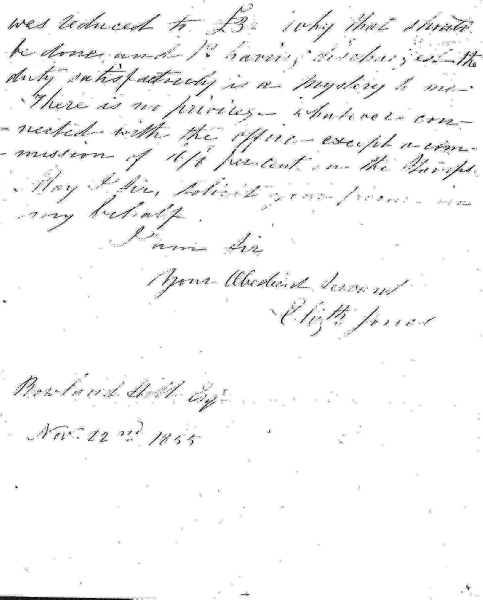 was reduced to £3. Why that should
be done and I having discharged the
duty satisfactorily is a mystery to me
There is no privilege whatever con-
-nected with the office except a com-
-mission of per cent on the Stamps.
May I Sir, solicit your in
my behalf.
I am Sir
Your Obedient Servant
Elizth Jones
Rowland Hill Esqr
Nov. 22nd 1855